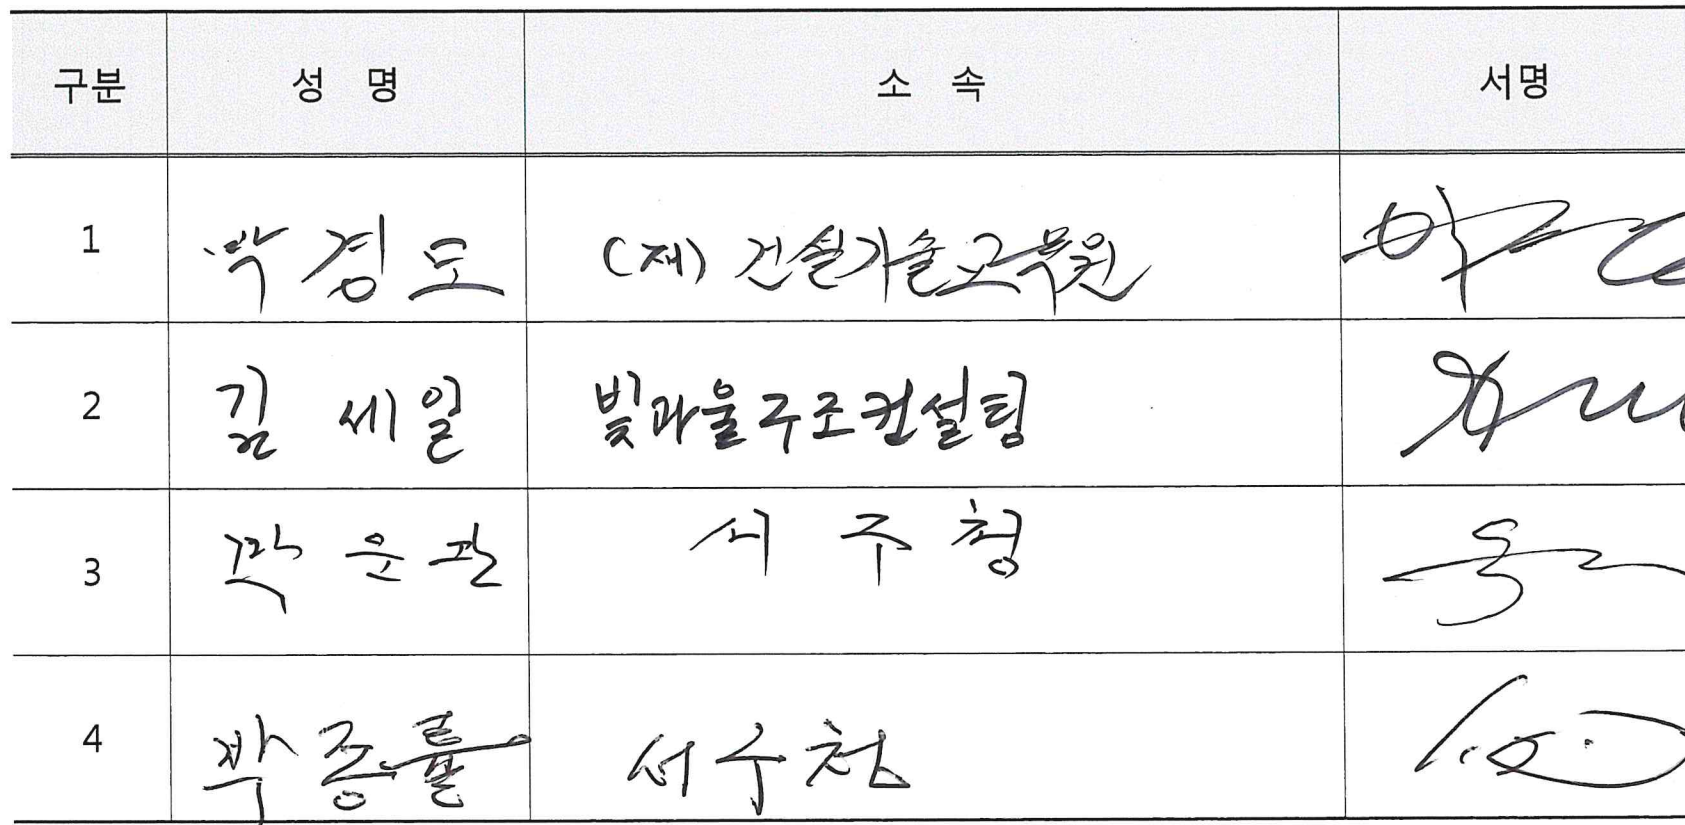 구분 성 명 소 속 서명
1 박경도 (재) 건설기술교육원
2 김세일 빛과울구조컨설팅
3 곽운관 서구청
4 박종률 서구청